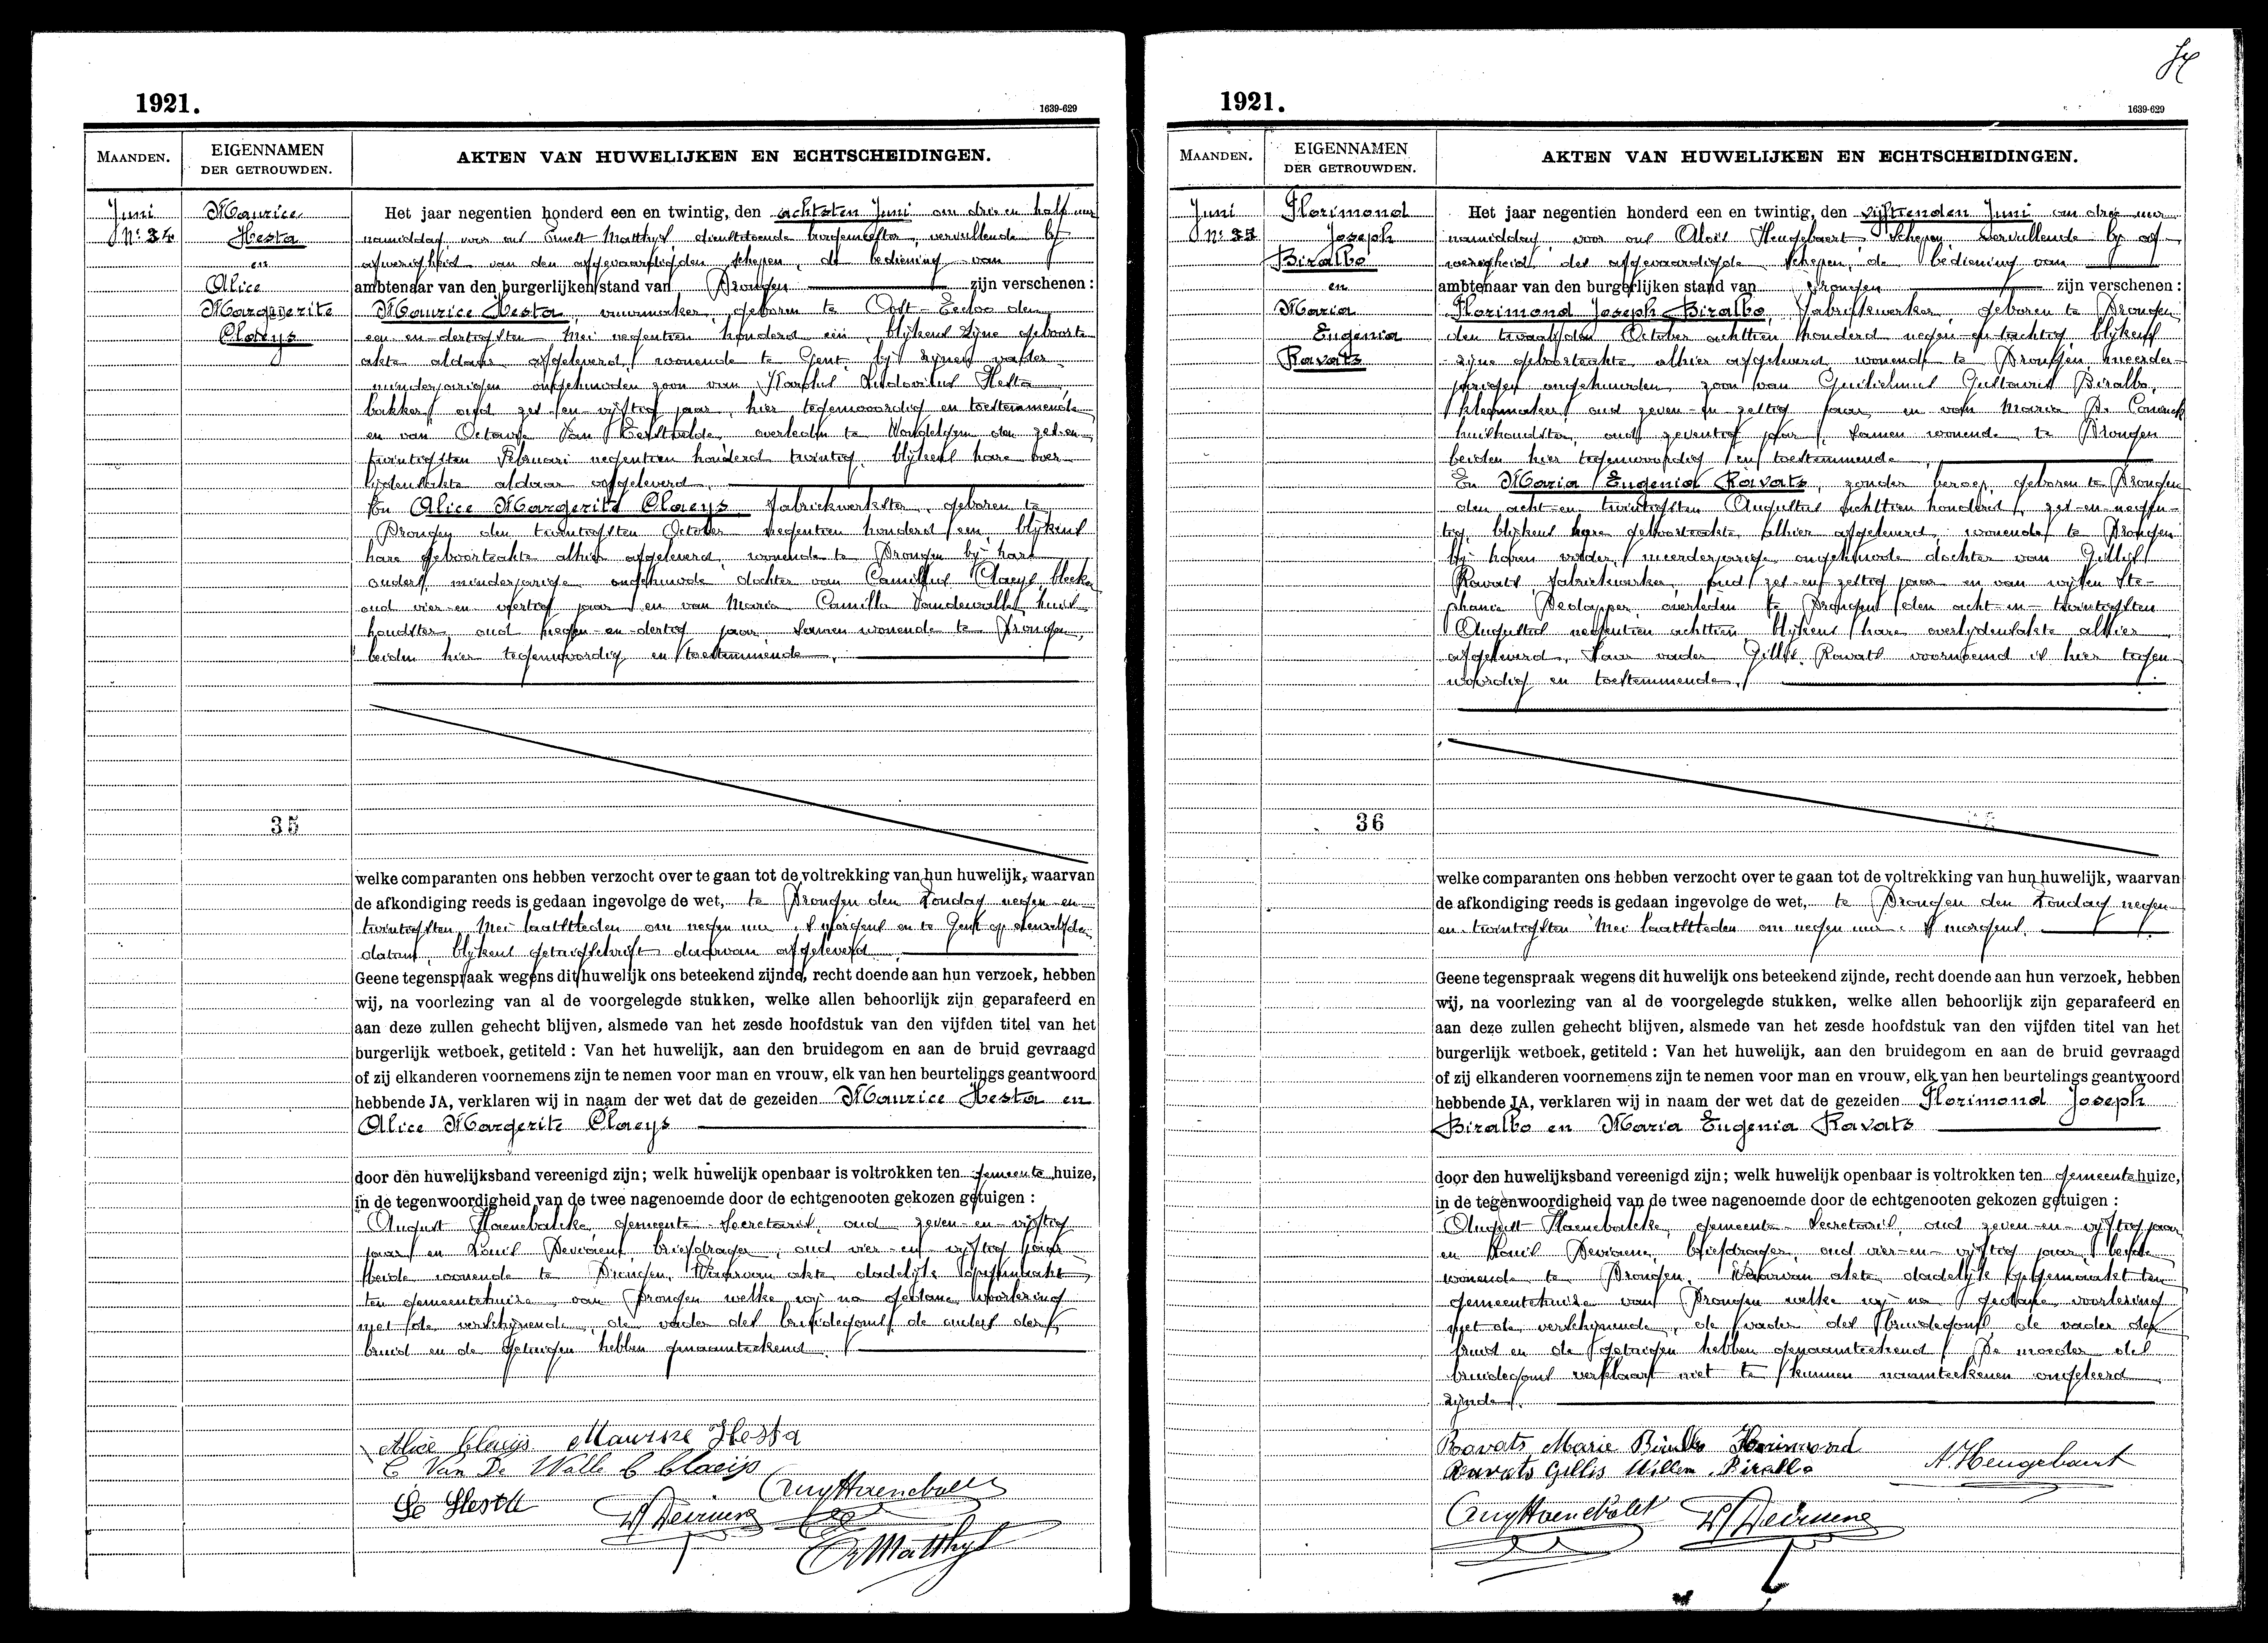 1921.
1639-629
MAANDEN.
EIGENNAMEN
DER GETROUWDEN.
AKTEN VAN HUWELIJKEN EN ECHTSCHEIDINGEN.
Juni
Nr 34
Maurice
Hesta
en
Alice
Margerite
Claeys
35
Het jaar negentien honderd een en twintig, den achtsten Juni om drie en half uur
namiddag, voor ons Ernest Matthys, dienstdoende burgemeester, vervullende bij
afwezigheid van den afgevaardigden schepen, de bediening van
ambtenaar van den burgerlijken stand van Drongen zijn verschenen:
Maurice Hesta, vuurmaker, geboren te Oost-Eecloo den
een-en-dertigsten Mei negentien honderd een, blijkens zijne geboorte
akte aldaar afgeleverd, wonende te Gent bij zijnen vader
minderjarigen ongehuwden zoon van Karolus Ludovicus Hesta
bakker, oud zes-en-vijftig jaar, hier tegenwoordig en toestemmende
en van Octavie Van overleden te Wondelgem den zes-en
twintigsten Februari negentien honderd twintig, blijkens hare over
lijdensakte aldaar afgeleverd.
En Alice Margerite Claeys, fabriekwerkster, geboren te
Drongen den twintigsten October negentien honderd een, blijkens
hare geboorteakte alhier afgeleverd, wonende te Drongen bij hare
ouders, minderjarige ongehuwde dochter van Camillus Claeys, bleeker
oud vier-en-veertig jaar en van Maria Camilla Vandewalle, huis
houdster, oud negen-en-dertig jaar, samen wonende te Drongen,
beiden hier tegenwoordig en toestemmende.
welke comparanten ons hebben verzocht over te gaan tot de voltrekking van hun huwelijk, waarvan
de afkondiging reeds is gedaan ingevolge de wet, te Drongen den Zondag negen-en
twintigsten Mei laatstleden om negen uur 's morgens en te Gent op denzelfden
datum, blijkens getuigschrift daarvan afgeleverd.
Geene tegenspraak wegens dit huwelijk ons beteekend zijnde, recht doende aan hun verzoek, hebben
wij, na voorlezing van al de voorgelegde stukken, welke allen behoorlijk zijn geparafeerd en
aan deze zullen gehecht blijven, alsmede van het zesde hoofdstuk van den vijfden titel van het
burgerlijk wetboek, getiteld: Van het huwelijk, aan den bruidegom en aan de bruid gevraagd
of zij elkanderen voornemens zijn te nemen voor man en vrouw, elk van hen beurtelings geantwoord
hebbende JA, verklaren wij in naam der wet dat de gezeiden Maurice Hesta en
Alice Margerite Claeys
door den huwelijksband vereenigd zijn; welk huwelijk openbaar is voltrokken ten gemeente huize,
in de tegenwoordigheid van de twee nagenoemde door de echtgenooten gekozen getuigen:
August Haenebalcke, gemeente-secretaris, oud zeven-en-vijftig
jaar en Louis Deviaene, briefdrager, oud vier-en-vijftig jaar
beide wonende te Drongen. Waarvan akte dadelijk opgemaakt
ten gemeentehuize van Drongen welke wij na gedane voorlezing
met de verschijnende, de vader des bruidegoms, de ouders der
bruid en de getuigen hebben genaamteekend.
Alice Claeys Maurice Hesta
C Van De Walle C Claeijs
Hesta
Matthys
1921.
1639-629
MAANDEN.
EIGENNAMEN
DER GETROUWDEN.
AKTEN VAN HUWELIJKEN EN ECHTSCHEIDINGEN.
Juni
Nr 35
Florimond
Joseph
Biralbo
en
Maria
Eugenia
Ravats
36
Het jaar negentien honderd een en twintig, den vijftienden Juni om drie uur
namiddag, voor ons Alois Heugebaert, Schepen, vervullende bij af-
wezigheid des afgevaardigde schepen, de bediening van
ambtenaar van den burgerlijken stand van Drongen zijn verschenen:
Florimond Joseph Biralbo, fabriekwerker, geboren te Drongen
den twaalfden October achttien honderd negen-en-tachtig, blijkens
zijne geboorteakte alhier afgeleverd, wonende te Drongen, meerder-
jarigen ongehuwden zoon van Guilielmus Gustavus Biralbo,
kleermaker, oud zeven-en-zestig jaar, en van Maria De Coninck
huishoudster, oud zeventig jaar, samen wonende te Drongen
beiden hier tegenwoordig en toestemmende.
En Maria Eugenia Ravats, zonder beroep, geboren te Drongen
den acht-en-twintigsten Augustus achttien honderd zes-en-negen-
tig, blijkens hare geboorteakte alhier afgeleverd, wonende te Drongen
bij haren vader, meerderjarige ongehuwde dochter van Gillis
Ravats, fabriekwerker, oud zes-en-zestig jaar en van wijlen Ste-
phanie Declopper, overleden te Drongen den acht-en-twintigsten
Augustus negentien achttien, blijkens hare overlijdensakte alhier
afgeleverd. Haar vader Gillis Ravats voornoemd is hier tegen
woordig en toestemmende.
welke comparanten ons hebben verzocht over te gaan tot de voltrekking van hun huwelijk, waarvan
de afkondiging reeds is gedaan ingevolge de wet, te Drongen den Zondag negen
en-twintigsten Mei laatstleden om negen uur 's morgens.
Geene tegenspraak wegens dit huwelijk ons beteekend zijnde, recht doende aan hun verzoek, hebben
wij, na voorlezing van al de voorgelegde stukken, welke allen behoorlijk zijn geparafeerd en
aan deze zullen gehecht blijven, alsmede van het zesde hoofdstuk van den vijfden titel van het
burgerlijk wetboek, getiteld: Van het huwelijk, aan den bruidegom en aan de bruid gevraagd
of zij elkanderen voornemens zijn te nemen voor man en vrouw, elk van hen beurtelings geantwoord
hebbende JA, verklaren wij in naam der wet dat de gezeiden Florimond Joseph
Biralbo en Maria Eugenia Ravats
door den huwelijksband vereenigd zijn; welk huwelijk openbaar is voltrokken ten gemeentehuize,
in de tegenwoordigheid van de twee nagenoemde door de echtgenooten gekozen getuigen:
August Haenebalcke, gemeente-secretaris, oud zeven-en-vijftig jaar
en Louis Deviaene, briefdrager, oud vier-en-vijftig jaar, beide
wonende te Drongen. Waarvan akte dadelijk opgemaakt ten
gemeentehuize van Drongen welke wij na gedane voorlezing
met de verschijnende, de vader des bruidegoms, de vader der
bruid en de getuigen hebben genaamteekend. De moeder des
bruidegoms verklaart niet te kunnen naamteekenen ongeleerd
zijnde.
Ravats Marie Biralbo Florimond
Ravats Gillis Willem Biralbo
A. Heugebaert